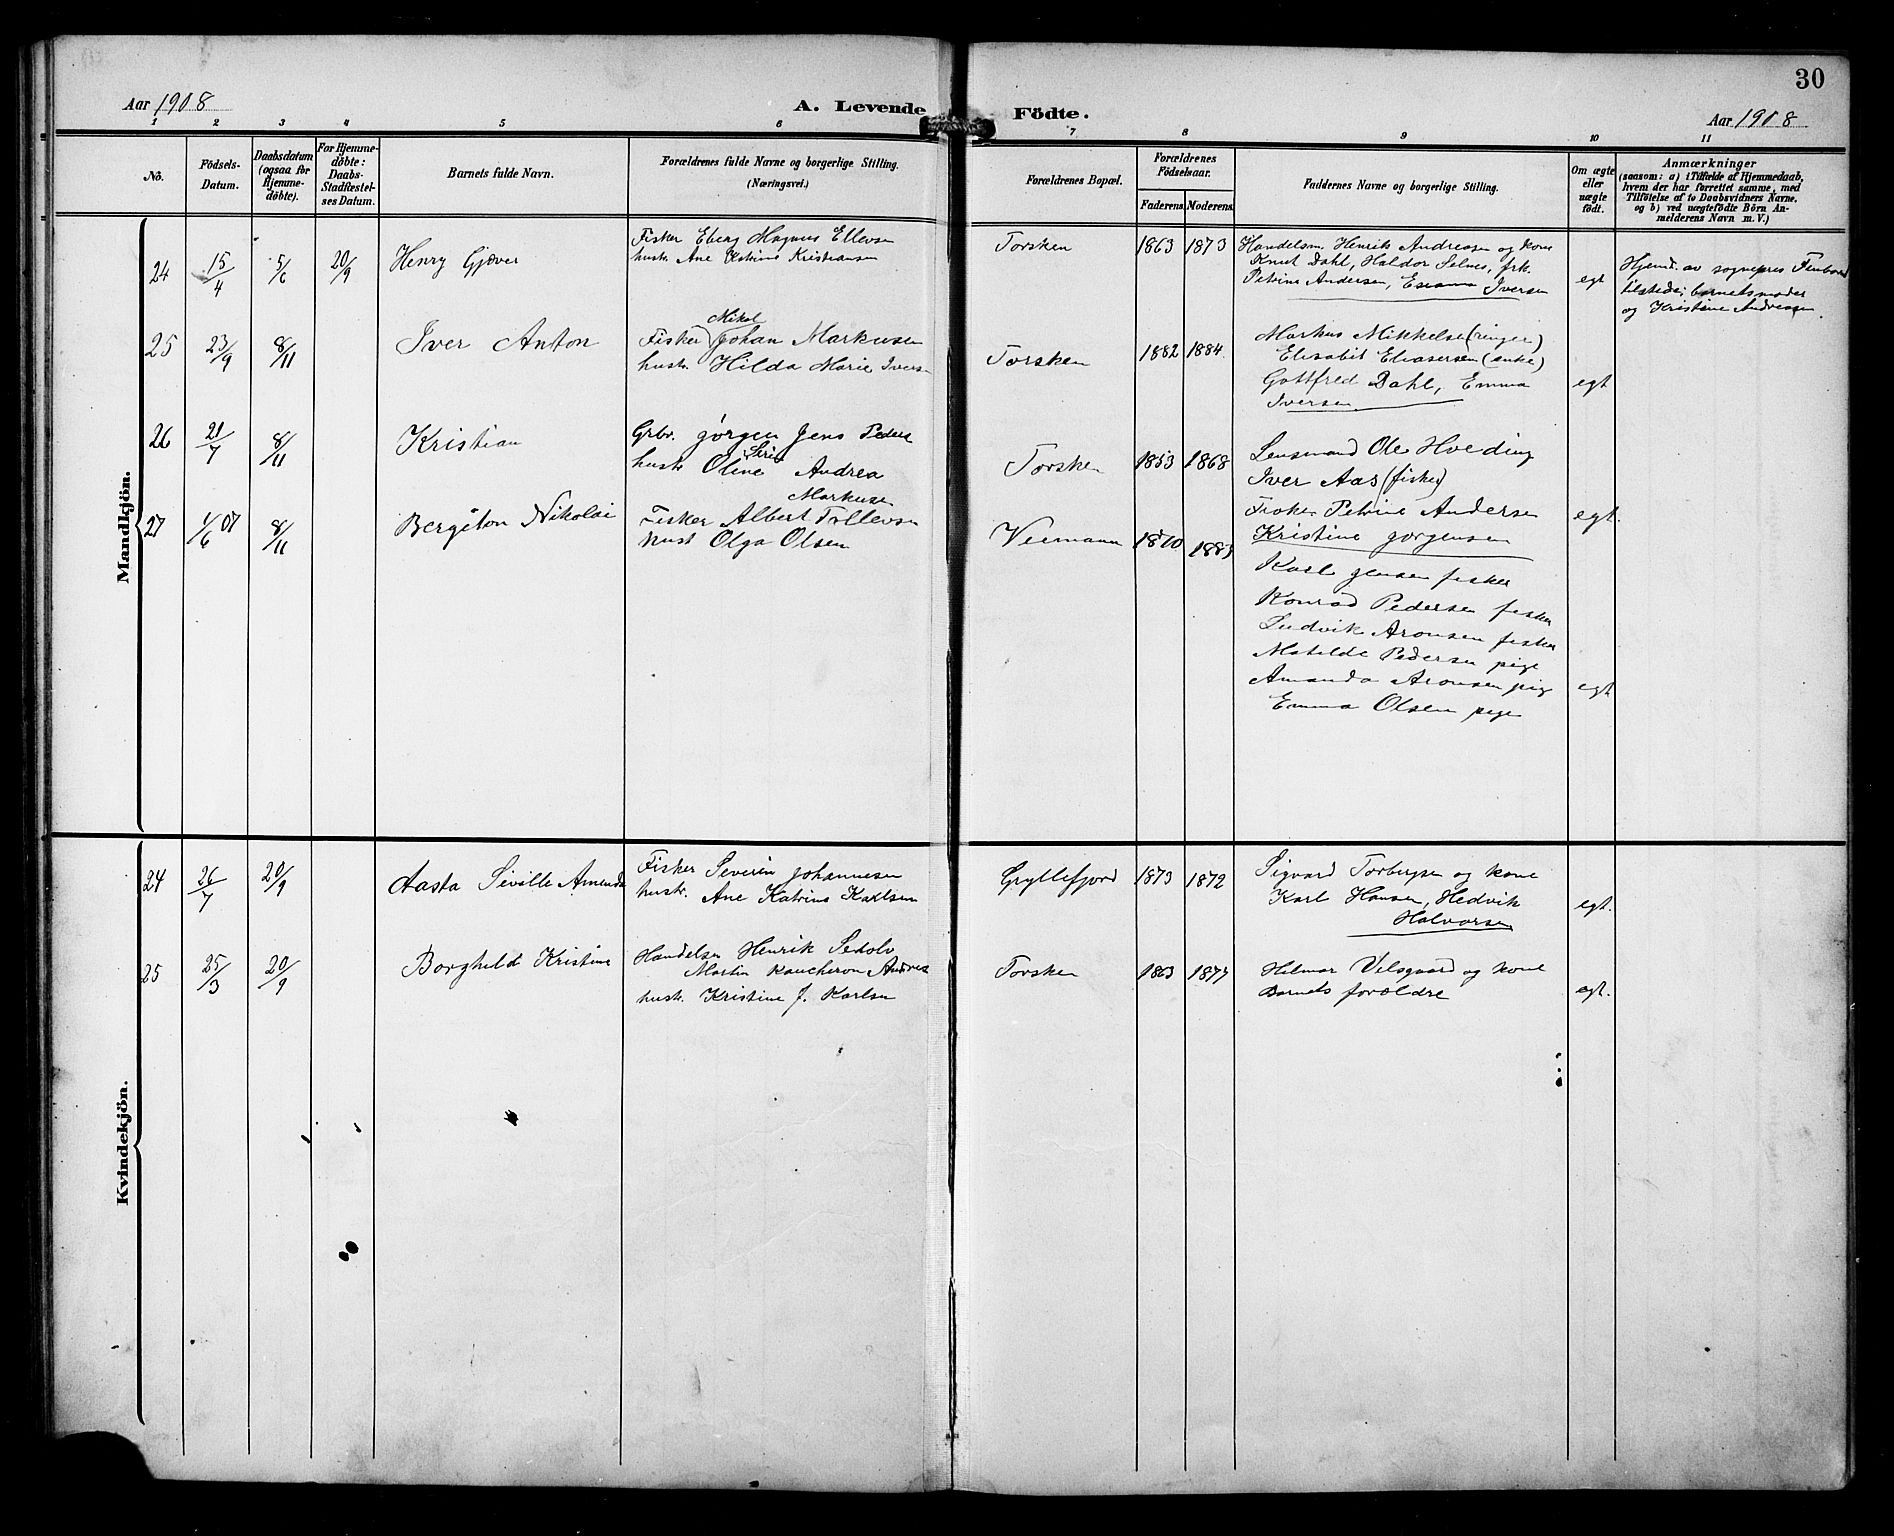 30
Aar 1908
A. Levende Födte.
Aar 1908
1 2 3 4 5 6 7 8 9 10 11
No.
Födsels-
Datum.
Daabsdatum
(ogsaa for
Hjemme-
döbte).
For Hjemme-
döbte:
Daabs-
Stadfæstel-
ses Datum.
Barnets fulde Navn.
Forældrenes fulde Navne og borgerlige Stilling.
(Næringsvei.)
Forældrenes Bopæl.
Forældrenes
Födselsaar.
Faderens. Moderens.
Faddernes Navne og borgerlige Stilling.
Om ægte
eller
uægte
födt.
Anmærkninger
(saasom: a) i Tilfælde af Hjemmedaab,
hvem der har forrettet samme, med
Tilföielse af to Daabsvidners Navne,
og b) ved uægtefödte Börn An-
melderens Navn m. V.)
Mandkjön.
24 15/4 5/6 20/9 Henry Gjæver
Fisker Eberg Magnus Ellevsen
hustr. Ane Katrine Kristiansen
Torsken 1863 1873
Handelsm. Henrik Andreasen og kone
Knut Dahl, Haldor Selnes, frk.
Petrine Andersen, Emma Iversen
egt
Hjemd. av sognepres
tilstede: barnets moder
og Kristine Andresen.
25 23/9 8/11 Iver Anton
Mikal
Fisker Johan Markusen
hustr. Hilda Marie Ivers
Torsken 1882 1884
Markus Mikkelse (ringer)
Elisabet Eliasersen (enke)
Gottfred Dahl, Emma
Iversen
egt
26 21/7 8/11 Kristian
Grbr. Jörgen Jens Peders
hustr. Oline Andrea
Markuse
Torsken 1853 1868
Lensmand Ole Hveding
Iver Aas (fisker)
Petrine Andersen
Kristine Jörgensen
egt.
27 1/6 07 8/11 Bergeton Nikolai
Fisker Albert Tollevsen
hust Olga Olsen
Veimann 1870 1883
Karl Jensen fisker
Konrad Pedersen fisker
Ludvik Aronsen fisker
Matilde Pedersen pige
Amanda Aronsen pig
Emma Olsen pige
egt
Kvindekjön.
24 26/7 20/9 Aasta Seville Amanda
Fisker Severin Johannesen
hustr. Ane Katrine Karlsen
Gryllefjord 1873 1872
Sigvard Torbergsen og kone
Karl Hansen, Hedvik
Halvorsen
egt.
25 25/3 20/9 Borghild Kristine
Handelsm Henrik
Martin Andres
hustr. Kristine J. Karlsen
Torsken 1863 1877
Helmar Velsgaard og kone
Barnets forældre
egt.